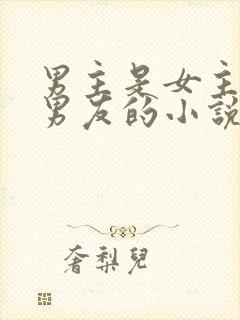 男主是女主
男友的小說
奢梨兒